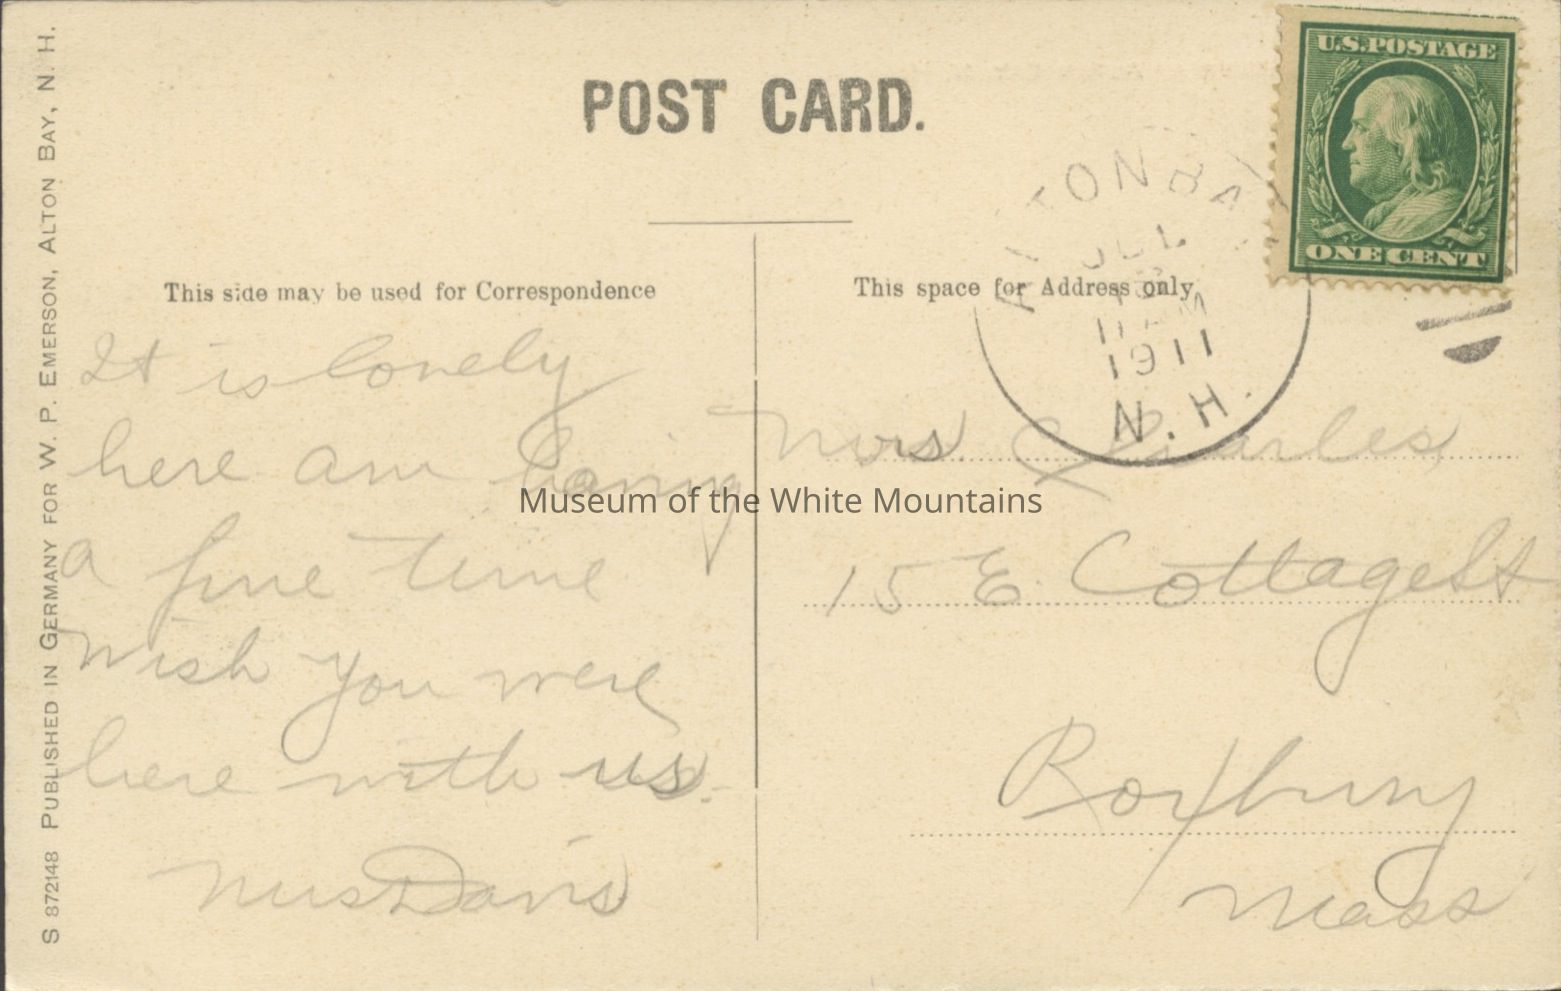 POST CARD.
U.S. POSTAGE
ONE CENT
ALTON BAY
JUL
11 AM
1911
N. H.
This side may be used for Correspondence
It is lonely
here am having
a fine time
wish you were
here with us.
Mrs Davis
This space for Address only
Mrs Charles
15 E Cottage St
Roxbury
Mass
S 872148 PUBLISHED IN GERMANY FOR W. P. EMERSON, ALTON BAY, N. H.
Museum of the White Mountains